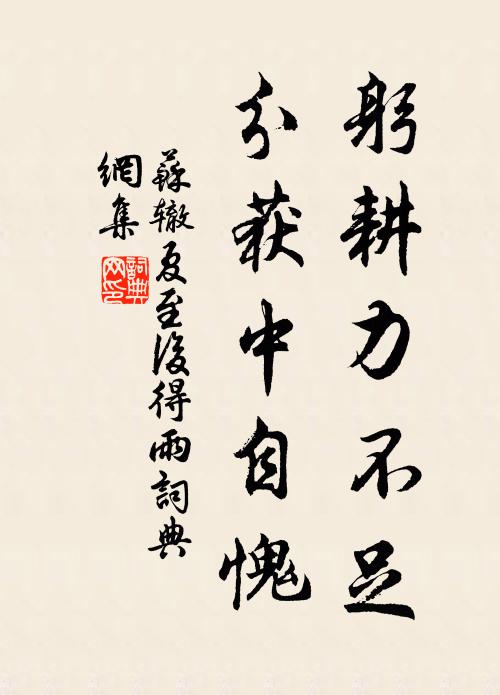 躬耕力不足
分获中自愧
蘇辙夏至後得雨詞典
網集
詞典
网印